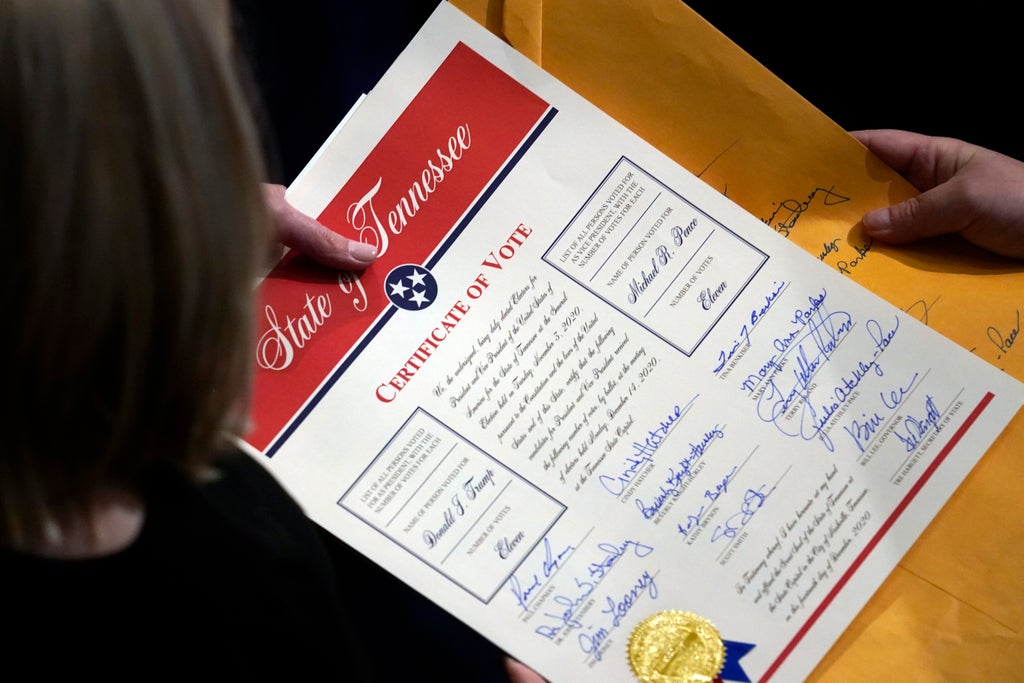 State of Tennessee
CERTIFICATE OF VOTE
We, the undersigned, being duly elected Electors for
President and Vice President of the United States of
America for the State of Tennessee at the General
Election held on Tuesday, November 3, 2020,
pursuant to the Constitution and the laws of the United
States and of this State, certify that the following
candidates for President and Vice President received
the following number of votes, by ballot, at the meeting
of electors held Monday, December 14, 2020,
at the Tennessee State Capitol.
LIST OF ALL PERSONS VOTED
FOR AS PRESIDENT, WITH THE
NUMBER OF VOTES FOR EACH
NAME OF PERSON VOTED FOR
Donald J. Trump
NUMBER OF VOTES
Eleven
LIST OF ALL PERSONS VOTED FOR
AS VICE PRESIDENT, WITH THE
NUMBER OF VOTES FOR EACH
NAME OF PERSON VOTED FOR
Michael R. Pence
NUMBER OF VOTES
Eleven
Paul Chapman
PAUL CHAPMAN
Dr. John L. Stanbery
Jim Looney
Cindy Hatcher
CINDY HATCHER
Beverly Knight-Hurley
BEVERLY KNIGHT-HURLEY
Kathy Bryson
KATHY BRYSON
SCOTT SMITH
Tina T Benkiser
TINA BENKISER
Mary Ann Parks
MARY ANN PARKS
TERRY ROLAND
Julia Atchley-Pace
JULIA ATCHLEY PACE
Bill Lee
BILL LEE, GOVERNOR
Tre Hargett
TRE HARGETT, SECRETARY OF STATE
In Testimony whereof I have hereunto set my hand
and affixed the Great Seal of the State of Tennessee at
the State Capitol in the City of Nashville, Tennessee
on the fourteenth day of December, 2020